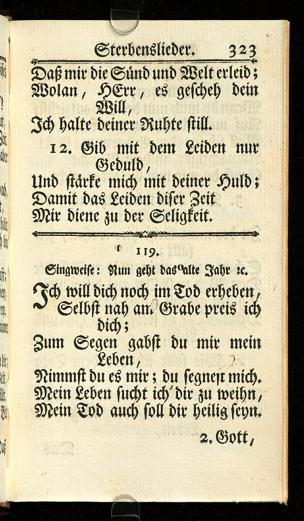 Sterbenslieder. 323
Daß mir die Sünd und Welt erleid;
Wolan, HErr, es gescheh dein
Will,
Ich halte deiner Ruhte still.
12. Gib mit dem Leiden nur
Geduld,
Und stärke mich mit deiner Huld;
Damit das Leiden diser Zeit
Mir diene zu der Seligkeit.
119.
Singweise: Nun geht das alte Jahr ꝛc.
Ich will dich noch im Tod erheben,
Selbst nah am Grabe preis ich
dich;
Zum Segen gabst du mir mein
Leben,
Nimmst du es mir; du segnest mich.
Mein Leben sucht ich dir zu weihn,
Mein Tod auch soll dir heilig seyn.
2. Gott,